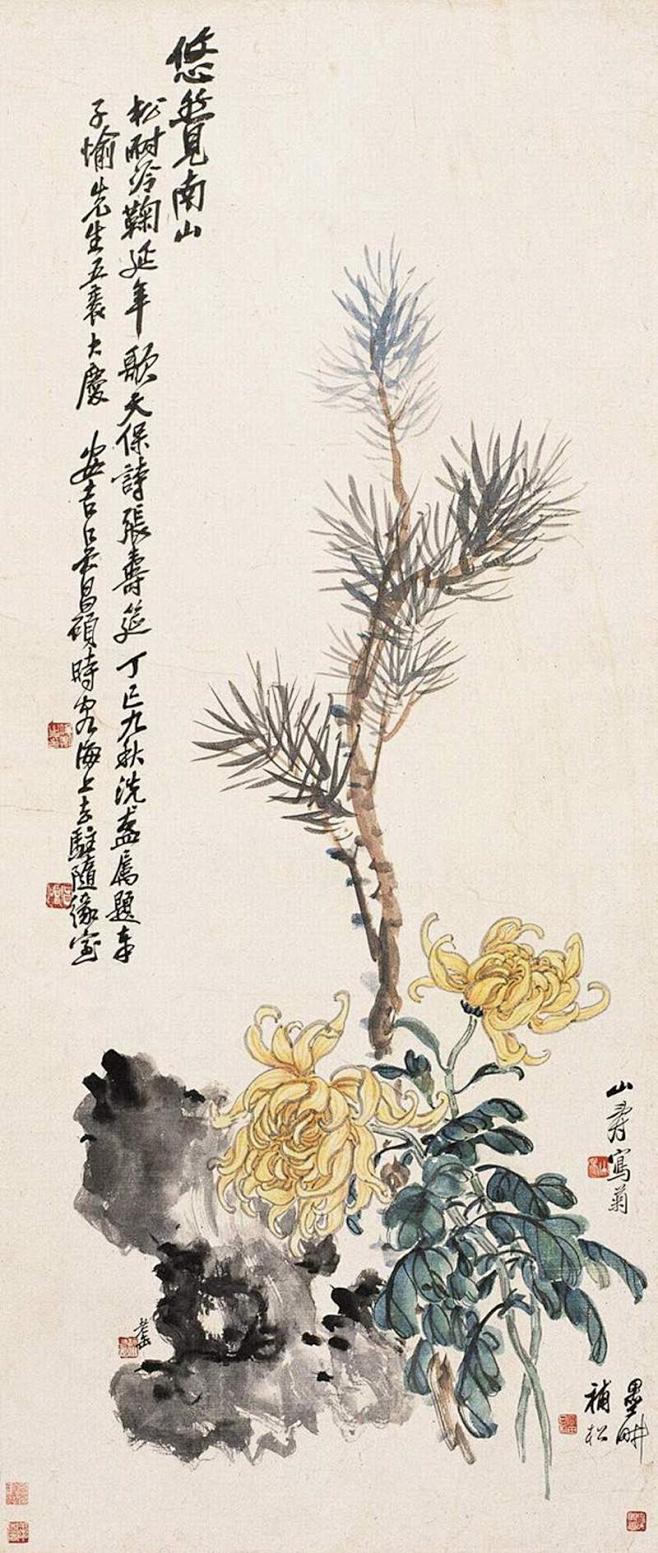 悠覽南山
松耐冷鞠延年歌天保詩張壽筵丁巳九秋洗盦屬題奉
子愉先生五袠大慶安吉吳昌碩時客海上去駐隨緣室
山壽寫菊
墨畊
補松